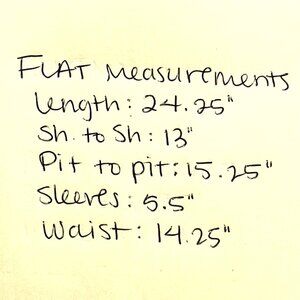 FLAT measurements
length: 24.25"
Sh. to Sh: 13"
Pit to pit: 15.25"
Sleeves: 5.5"
Waist: 14.25"